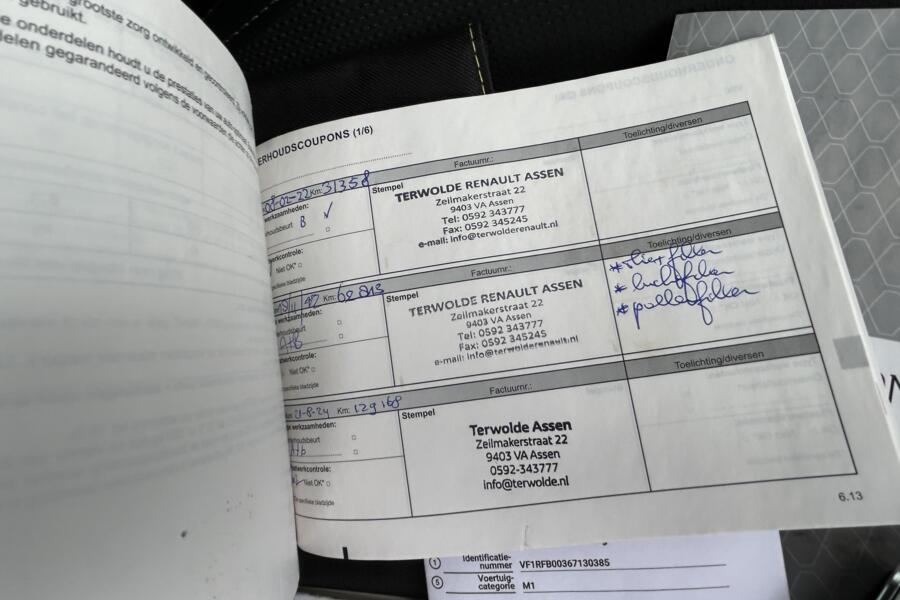 grootste zorg ontwikkeld en
gebruikt.
e onderdelen houdt u de prestaties van uw
delen gegarandeerd volgens de voorwaarden
ERHOUDSCOUPONS (1/6)
Factuurnr.:
Toelichting/diversen
08-02-22 Km: 31358
Stempel
werkzaamheden:
houdsbeurt B ✓
erkcontrole:
Niet OK*
pecifieke bladzijde
TERWOLDE RENAULT ASSEN
Zeilmakerstraat 22
9403 VA Assen
Tel: 0592 343777
Fax: 0592 345245
e-mail: info@terwolderenault.nl
Factuurnr.:
Toelichting/diversen
Km:
Stempel
werkzaamheden:
houdsbeurt
A+b
werkcontrole:
Niet OK*
pecifieke bladzijde
TERWOLDE RENAULT ASSEN
Zeilmakerstraat 22
9403 VA Assen
Tel: 0592 343777
Fax: 0592 345245
e-mail: info@terwolderenault.nl
* luchtfilter
* pollenfilter
Factuurnr.:
Toelichting/diversen
21-8-24 Km: 129168
Stempel
werkzaamheden:
erhoudsbeurt
A+b
werkcontrole:
Niet OK*
specifieke bladzijde
Terwolde Assen
Zeilmakerstraat 22
9403 VA Assen
0592-343777
info@terwolde.nl
6.13
1 Identificatie-
nummer VF1RFB00367130385
5 Voertuig-
categorie M1